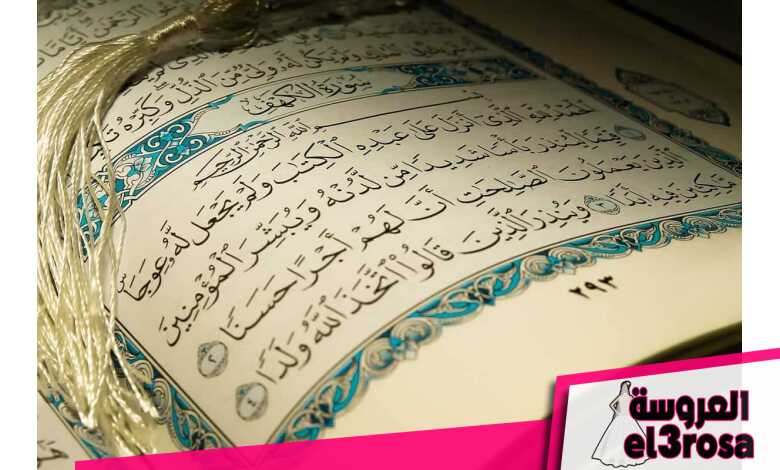 ٱلرَّحْمَٰنَ أَيًّا مَّا
لَهُۥ وَلِىٌّ مِّنَ ٱلذُّلِّ وَكَبِّرْهُ
سُورَةُ ٱلْكَهْفِ
ٱللَّهِ ٱلرَّحْمَٰنِ ٱلرَّحِيمِ
ٱلْحَمْدُ لِلَّهِ ٱلَّذِىٓ أَنزَلَ عَلَىٰ عَبْدِهِ ٱلْكِتَٰبَ وَلَمْ يَجْعَل لَّهُۥ عِوَجَا ۜ
قَيِّمًا لِّيُنذِرَ بَأْسًا شَدِيدًا مِّن لَّدُنْهُ وَيُبَشِّرَ ٱلْمُؤْمِنِينَ
ٱلَّذِينَ يَعْمَلُونَ ٱلصَّٰلِحَٰتِ أَنَّ لَهُمْ أَجْرًا حَسَنًا ٢
مَّٰكِثِينَ فِيهِ أَبَدًا ٣ وَيُنذِرَ ٱلَّذِينَ قَالُوا۟ ٱتَّخَذَ ٱللَّهُ وَلَدًا ٤
٢٩٣
العروسة
el3rosa